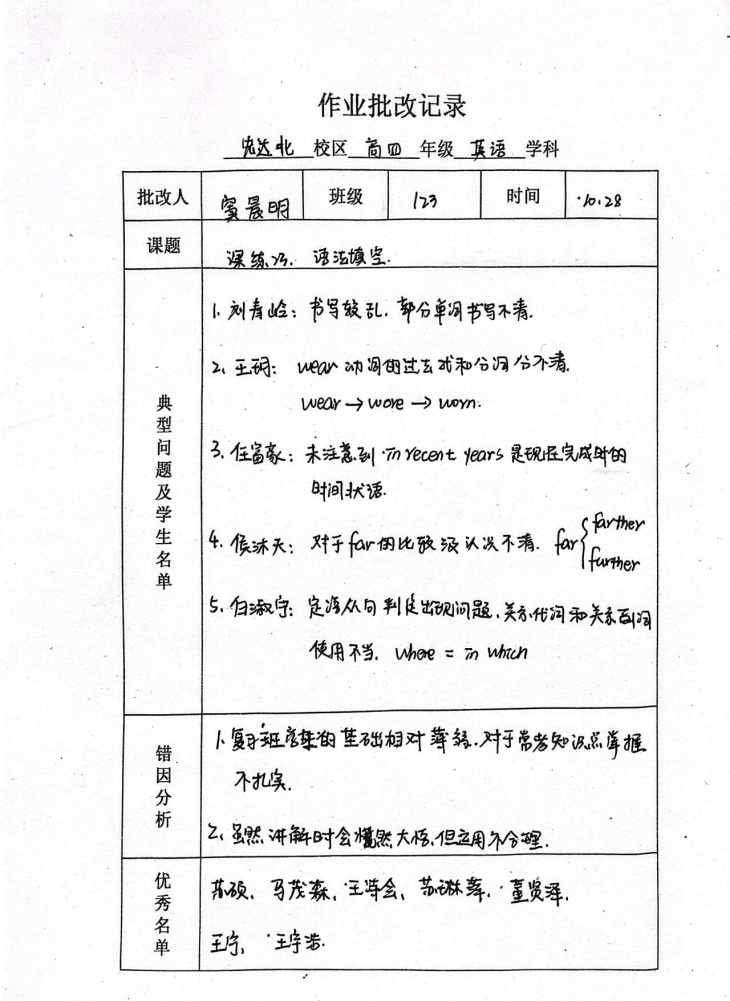 作业批改记录
宏达北 校区 高四 年级 英语 学科
批改人 窦晨明 班级 123 时间 10.28
课题 课练23. 语法填空.
典型问题及学生名单
1. 刘青岭: 书写较乱, 部分单词书写不清.
2. 王玥: wear 动词的过去式和分词分不清.
wear → wore → worn.
3. 任富豪: 未注意到 in recent years 是现在完成时的
时间状语.
4. 侯沐天: 对于far的比较级认识不清. far { farther
further
5. 归淑宁: 定语从句判定出现问题, 关系代词和关系副词
使用不当. where = in which
错因分析
1. 复习班学生的基础相对薄弱, 对于常考知识点掌握
不扎实.
2. 虽然讲解时会恍然大悟, 但应用不合理.
优秀名单
苏硕, 马茂森, 王诗会, 苏琳, 董贤泽,
王宁, 王宇浩.